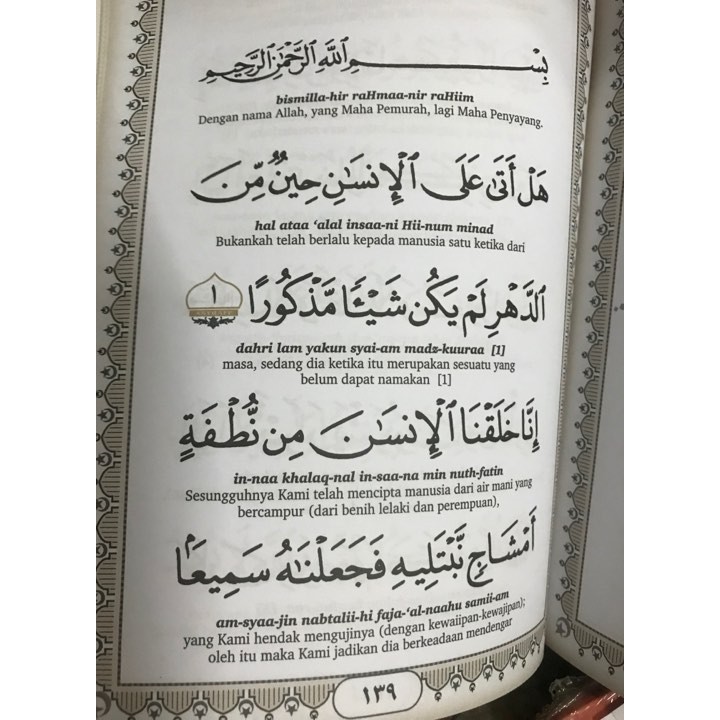 بِسْمِ ٱللَّهِ ٱلرَّحْمَٰنِ ٱلرَّحِيمِ
bismilla-hir raHmaa-nir raHiim
Dengan nama Allah, yang Maha Pemurah, lagi Maha Penyayang.
هَلْ أَتَىٰ عَلَى ٱلْإِنسَٰنِ حِينٌ مِّنَ
hal ataa ‘alal insaa-ni Hii-num minad
Bukankah telah berlalu kepada manusia satu ketika dari
ٱلدَّهْرِ لَمْ يَكُن شَيْـًٔا مَّذْكُورًا ١
dahri lam yakun syai-am madz-kuuraa [1]
masa, sedang dia ketika itu merupakan sesuatu yang
belum dapat namakan [1]
إِنَّا خَلَقْنَا ٱلْإِنسَٰنَ مِن نُّطْفَةٍ
in-naa khalaq-nal in-saa-na min nuth-fatin
Sesungguhnya Kami telah mencipta manusia dari air mani yang
bercampur (dari benih lelaki dan perempuan),
أَمْشَاجٍ نَّبْتَلِيهِ فَجَعَلْنَٰهُ سَمِيعًۢا
am-syaa-jin nabtalii-hi faja-‘al-naahu samii-am
yang Kami hendak mengujinya (dengan kewaiipan-kewajipan);
oleh itu maka Kami jadikan dia berkeadaan mendengar
١٣٩